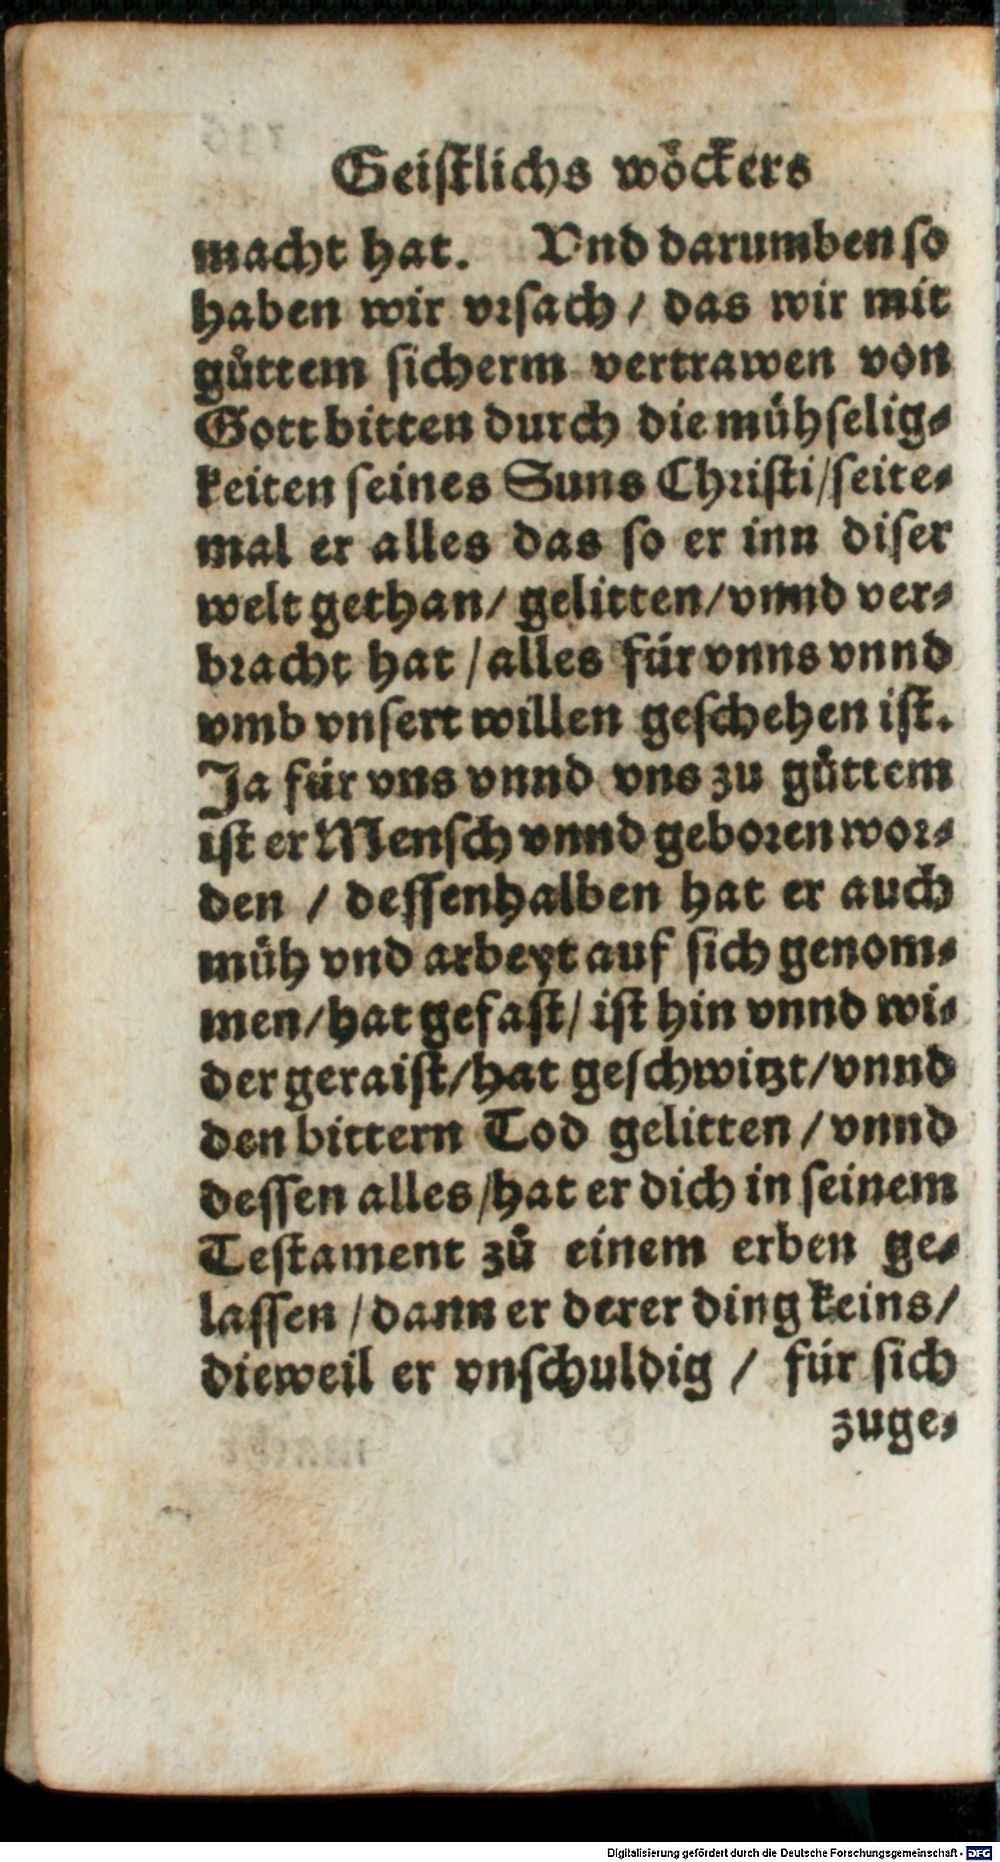 Geiſtlichs woͤckers
macht hat. Vnd darumben ſo
haben wir vrſach / das wir mit
guͦttem ſicherm vertrawen von
Gott bitten durch die muͤhſelig⸗
keiten ſeines Suns Chriſti / ſeite⸗
mal er alles das ſo er inn diſer
welt gethan / gelitten / vnnd ver⸗
bracht hat / alles fuͤr vnns vnnd
vmb vnſert willen geſchehen iſt.
Ja fuͤr vns vnnd vns zu guͦttem
iſt er Menſch vnnd geboren wor⸗
den / deſſenhalben hat er auch
muͤh vnd arbeyt auf ſich genom⸗
men / hat gefaſt / iſt hin vnnd wi⸗
der geraiſt / hat geſchwitzt / vnnd
den bittern Tod gelitten / vnnd
deſſen alles / hat er dich in ſeinem
Teſtament zuͦ einem erben ge⸗
laſſen / dann er derer ding keins /
dieweil er vnſchuldig / fuͤr ſich
zuge⸗
Digitalisierung gefördert durch die Deutsche Forschungsgemeinschaft - DFG